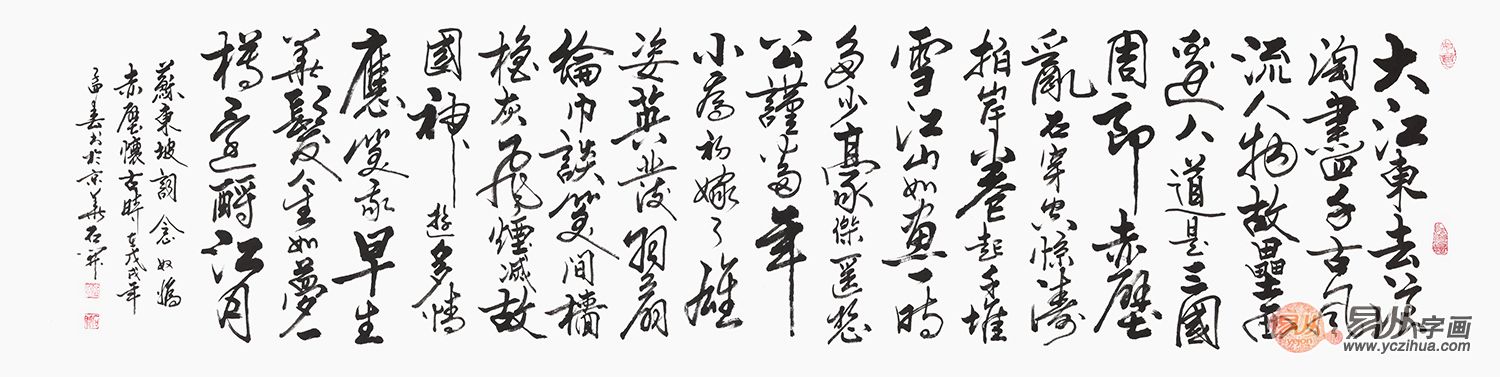 大江東去浪
淘盡千古風
流人物故壘西
邊人道是三國
周郎赤壁
亂石穿空驚濤
拍岸卷起千堆
雪江山如畫一時
多少豪傑遥想
公謹當年
小喬初嫁了雄
姿英發羽扇
綸巾談笑間檣
櫓灰飛煙滅故
國神遊多情
應笑我早生
華髮人生如夢一
樽還酹江月
蘇東坡詞念奴嬌
赤壁懷古時在戊戌年
孟春書於京華石開
易从字画
www.yczihua.com